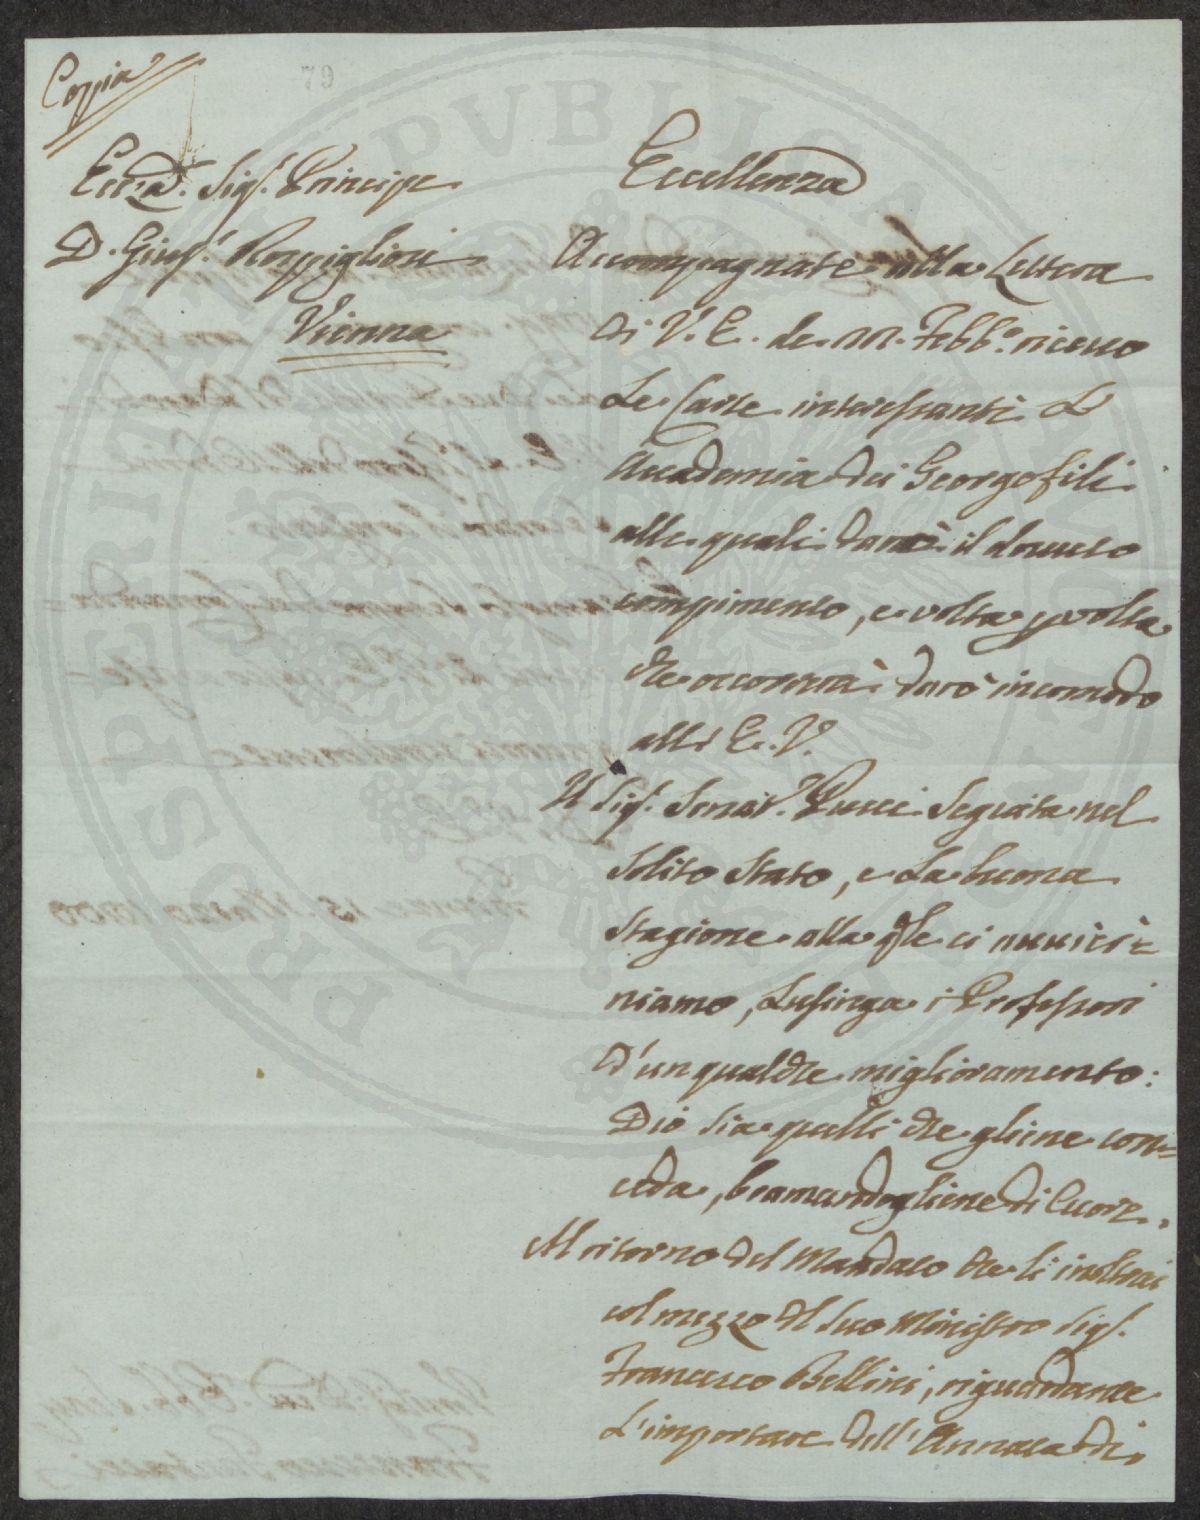 Coppia
79
Ecc.za Sig.r Principe
D. Gius.e Rospigliosi
Vienna
Eccellenza
Accompagnate alla Lettera
di V. E. de Febb.o ricevo
Le Carte interessanti L'
Accademia dei Georgofili
alle quali darò il dovuto
compimento, e volta p volta
che occorrerà darò incomodo
all' E. V.
Il Sig.r Senat.e Pucci Seguita nel
Solito Stato, e La buona
Stagione alla qle ci avvici=
niamo, Lusinga i Professori
d'un qualche miglioramento:
Dio sia quelli che gliene con=
ceda, bramandogliene di Cuore.
Al ritorno del Mandato che li inoltrai
col mezzo del suo Ministro Sig.r
Francesco Bellini, riguardante
L'importare dell'Annata di
PROSPERITATI PVBLICAE AVGENDAE